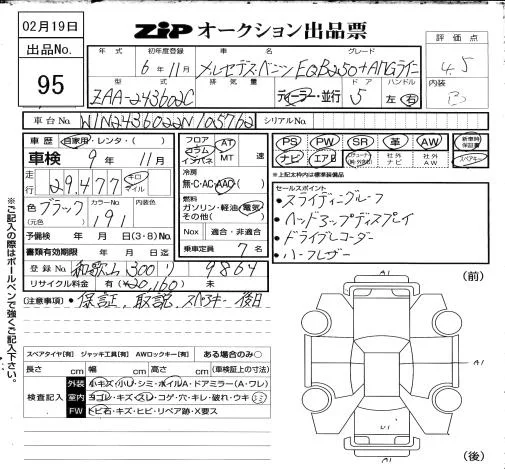 02月19日
ZiP オークション出品票
出品No.
95
評価点
4.5
内装
B
年式 初年度登録 車名 グレード
6年11月 メルセデス・ベンツ EQB250+AMGライン
型式 排気量 ドア ハンドル
ZAA-243602C ディーラー・並行 5 左 右
車台No. W1N2436022N105762 シリアルNo.
車歴 自家用・レンタ・( )
車検 9年 11月
走行 29,477 キロ マイル
色 ブラック (元色) カラーNo. 191 内装色
予備検 年 月 日(3・8)No.
書類有効期限 年 月 日迄
登録No. 和歌山 300 り 9864
リサイクル料金 有(¥20,160) 無
フロア コラム インパネ AT MT 速
冷房 無・C・AC・AAC
燃料 ガソリン・軽油・電気 その他( )
Nox 適合・非適合
乗車定員 7 名
PS PW SR 革 AW 新車時保証書
ナビ エアB 社外ナビ 社外AW スペアキー
※上記太枠内は標準装備品
セールスポイント
・スライディングルーフ
・ヘッドアップディスプレイ
・ドライブレコーダー
・ハーフレザー
[注意事項] ・保証、取説、スペアキー後日
※ご記入の際はボールペンで強くご記入下さい。
スペアタイヤ[有] ジャッキ工具[有] AWロックキー[有] ある場合のみ○
長さ cm 幅 cm 高さ cm (車検証上の寸法)
検査記入
外装 小キズ・小U・シミ・ホイルA・ドアミラー(A・ワレ)
室内 ヨゴレ・キズ・スレ・コゲ・穴・キレ・破れ・ウキ
FW トビ石・キズ・ヒビ・リペア跡・X要ス
(前)
A1
A1
U1
(後)